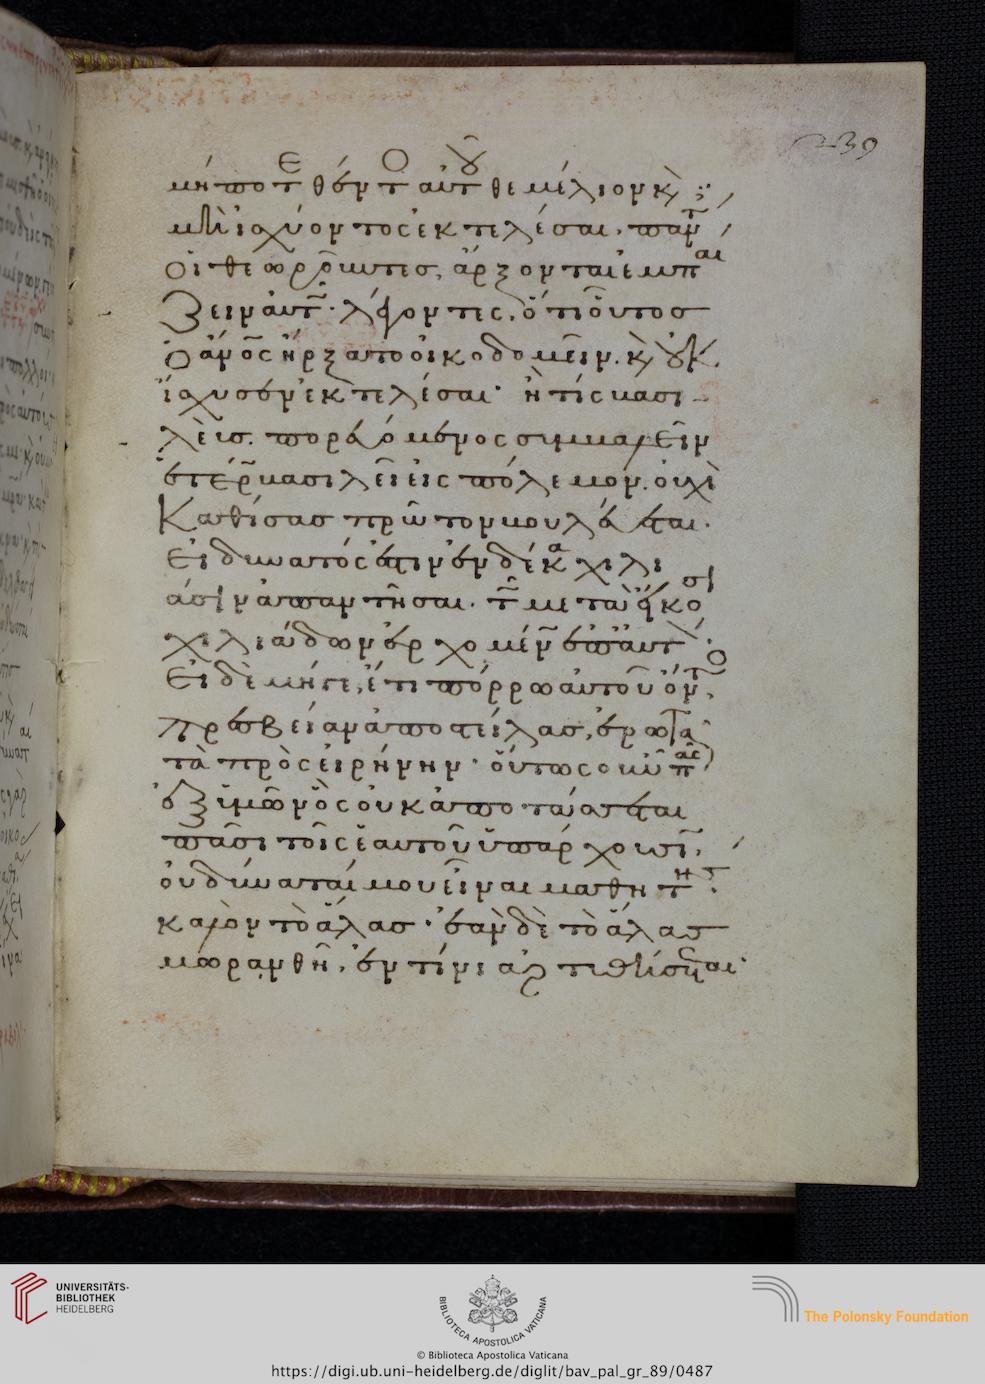 239
μήποτε θέντος αὐτοῦ θεμέλιον κ(αὶ)
μὴ ἰσχύοντος ἐκτελέσαι· πάντ(ες)
οἱ θεωροῦντες, ἄρξονται ἐμπαί
ζειν αὐτῷ· λέγοντες, ὅτι οὗτος
ὁ ἄν(θρωπ)ος ἤρξατο οἰκοδομεῖν. κ(αὶ) οὐκ
ἴσχυσεν ἐκτελέσαι· ἢ τίς βασι
λεὺς πορευόμενος συμβαλεῖν
ἑτέρῳ βασιλεῖ εἰς πόλεμον. οὐχὶ
καθίσας πρῶτον βουλεύεται·
εἰ δυνατός ἐστιν ἐν δέκα χιλι
άσιν ἀπαντῆσαι· τῷ μετὰ εἴκοσι
χιλιάδων ἐρχομένῳ ἐπ' αὐτόν·
εἰ δὲ μήγε, ἔτι πόρρω αὐτοῦ ὄντος,
πρεσβείαν ἀποστείλας, ἐρωτᾷ
τὰ πρὸς εἰρήνην· οὕτως οὖν πᾶς
ἐξ ὑμῶν ὃς οὐκ ἀποτάσσεται
πᾶσι τοῖς ἑαυτοῦ ὑπάρχουσι,
οὐ δύναταί μου εἶναι μαθητής·
καλὸν τὸ ἅλας· ἐὰν δὲ τὸ ἅλας
μωρανθῇ, ἐν τίνι ἀρτυθήσεται·
UNIVERSITÄTS-
BIBLIOTHEK
HEIDELBERG
BIBLIOTECA APOSTOLICA VATICANA
The Polonsky Foundation
© Biblioteca Apostolica Vaticana
https://digi.ub.uni-heidelberg.de/diglit/bav_pal_gr_89/0487